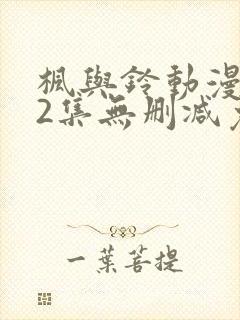 楓與鈴動漫
2集無刪減
一葉菩提